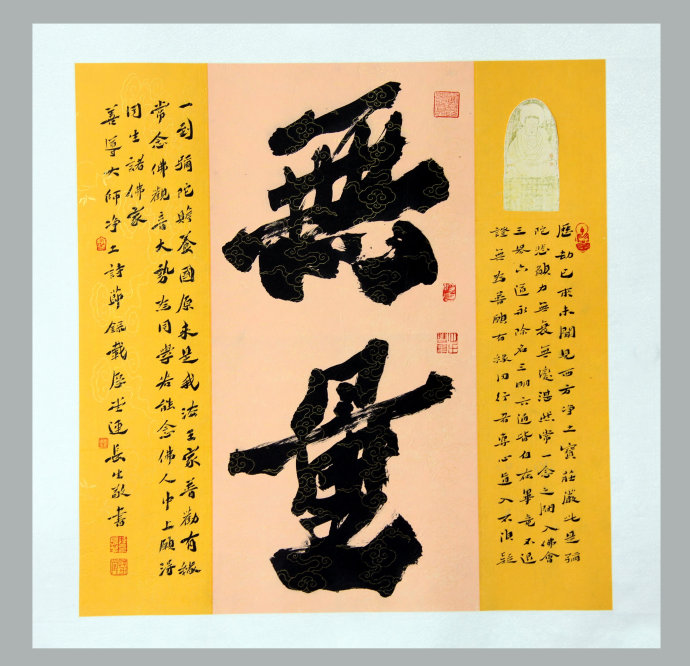 歷劫已來未聞見西方净土寶莊嚴此是彌
陀悲願力無衰無變湛然常一念之間入佛會
三界六道永除名三明六通皆自在畢竟不退
證無為普願有緣同行者專心直入不須疑
無量
一到彌陀安養國原來是我法王家普勸有緣
常念佛觀音大勢為同學若能念佛人中上願得
同生諸佛家
善導大師净土詩節錄載厚堂連長生敬書